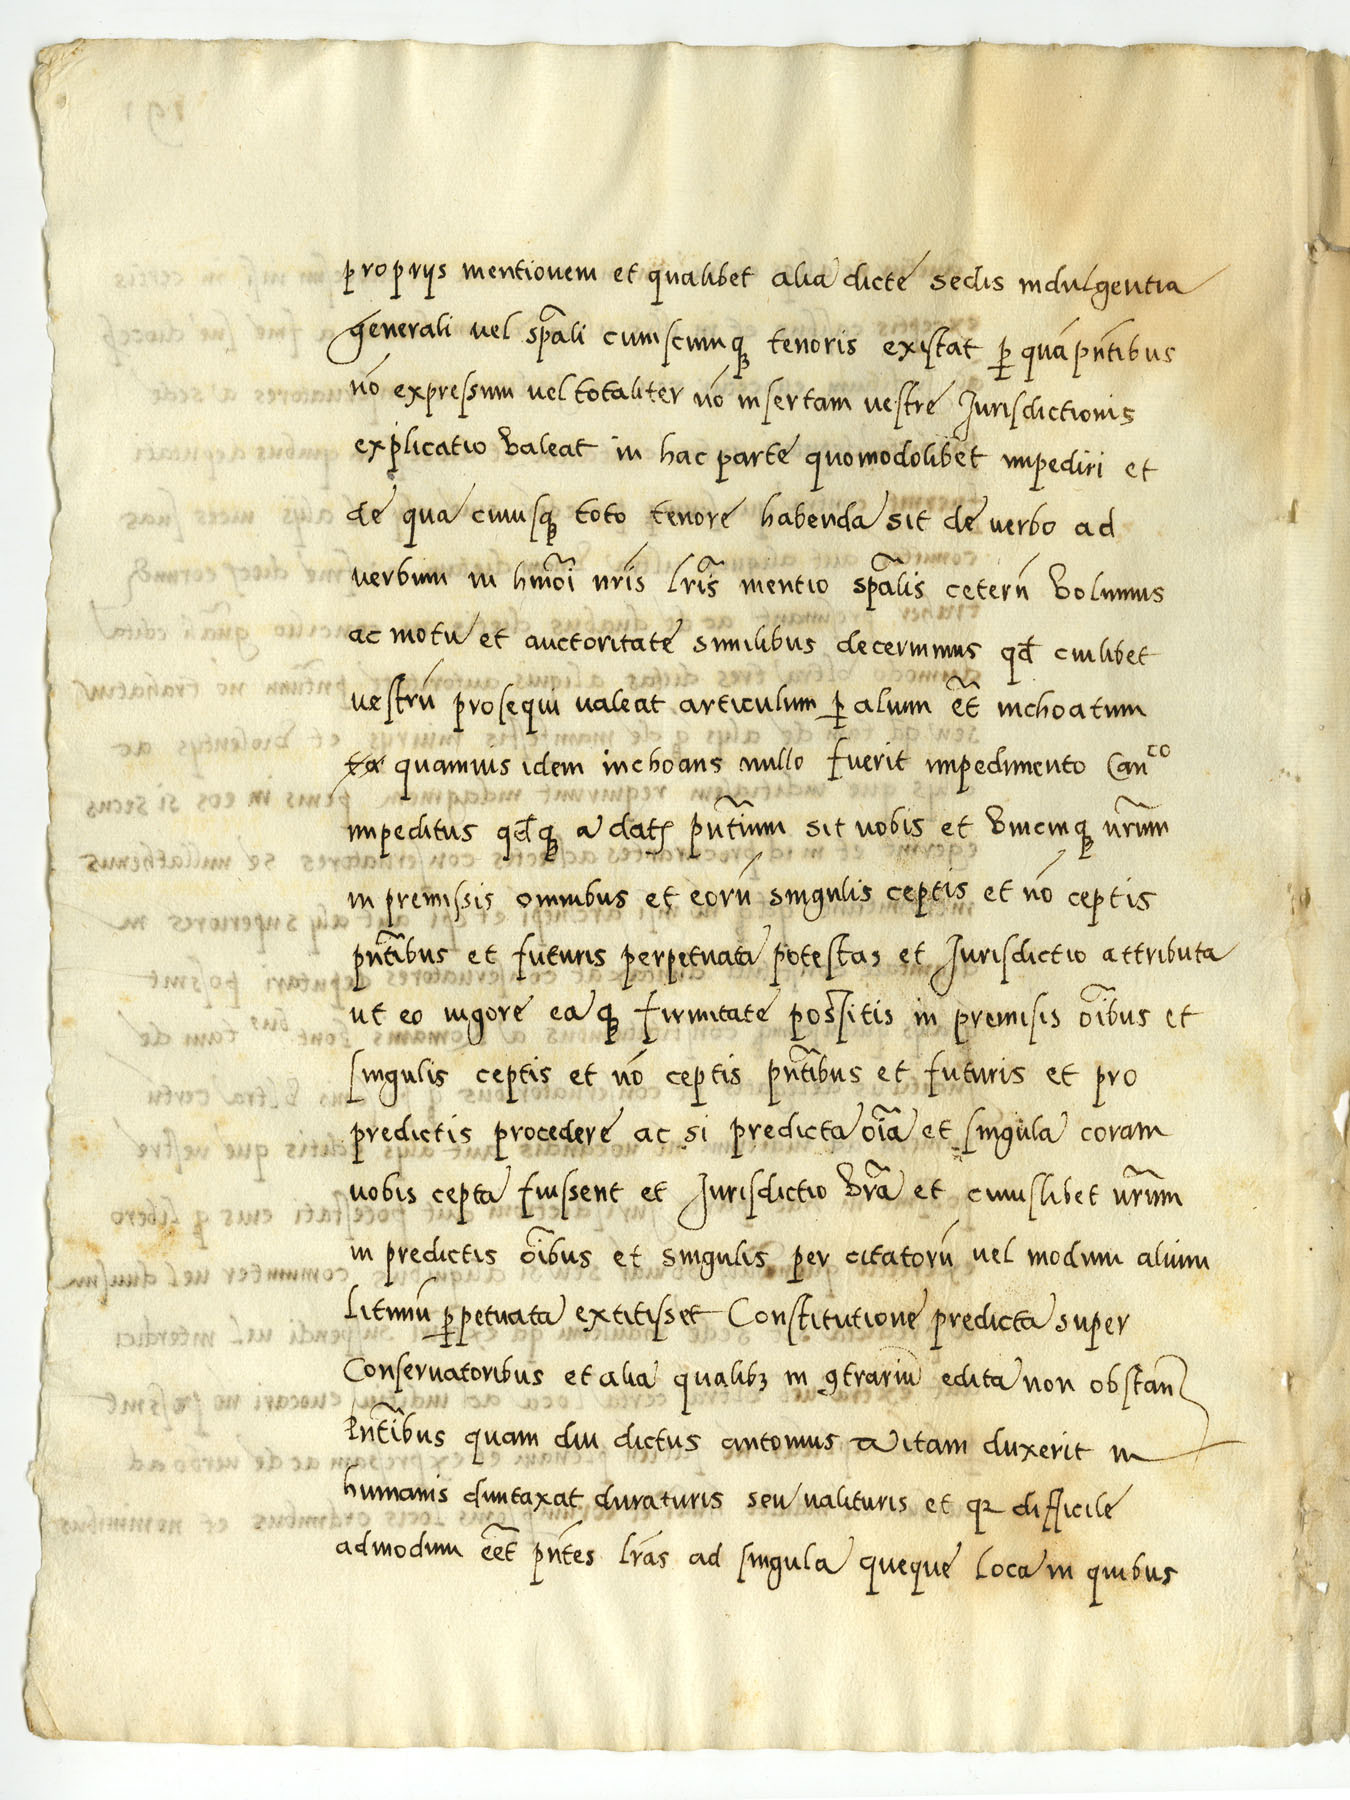 proprijs mentionem et qualibet alia dicte sedis indulgentia
generali vel sp̄ali cuiuscumq tenoris existat p quā pn̄tibus
nō expressum vel totaliter nō insertam vestre Jurisdictionis
explicatio valeat in hac parte quomodolibet impediri et
de qua cuiusq toto tenore habenda sit de verbo ad
verbum in hmōi nr̄is lr̄is mentio sp̄alis ceterū volumus
ac motu et auctoritate similibus decernimus qd̄ cuilibet
vestrū prosequi valeat articulum p alium et̄ inchoatum
quamuis idem inchoans nullo fuerit impedimento Canco
impeditus qd̄q a dat pn̄tium sit vobis et vnicuiq vr̄um
in premissis omnibus et eorū singulis ceptis et nō ceptis
pn̄tibus et futuris perpetuata potestas et Jurisdictio attributa
ut eo vigore eaq firmitate possitis in premisis oībus et
singulis ceptis et nō ceptis pn̄tibus et futuris et pro
predictis procedere ac si predicta oīa et singula coram
vobis cepta fuissent et Jurisdictio vr̄a et cuiuslibet vr̄um
in predictis oībus et singulis per citatorū vel modum alium
litimū ppetuata extitisset Constitutione predicta super
Conseruatoribus et alia qualibꝫ in ꝯtrariū edita non obstan
Pn̄tibus quam diu dictus antonius vitam duxerit in
humanis duntaxat duraturis seu valituris et qꝛ difficile
admodum eēt pn̄tes lr̄as ad singula queque loca in quibus
191